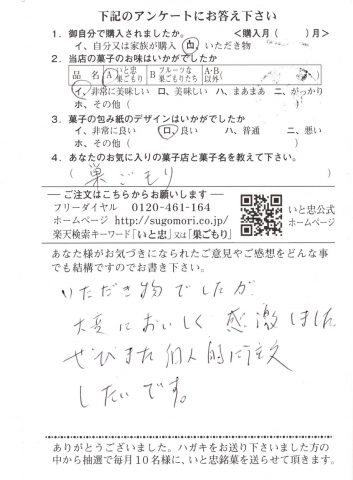 下記のアンケートにお答え下さい
1. 御自分で購入されましたか。 <購入月( )月>
イ、自分又は家族が購入 ロ、いただき物
2. 当店の菓子のお味はいかがでしたか
品 名 A いと忠巣ごもり B フルーツな巣ごもりたち A・B以外( )
イ、非常に美味しい ロ、美味しい ハ、まあまあ ニ、がっかり
ホ、その他( )
3. 菓子の包み紙のデザインはいかがでしたか
イ、非常に良い ロ、良い ハ、普通 ニ、悪い
ホ、その他( )
4. あなたのお気に入りの菓子店と菓子名を教えて下さい。
( 巣ごもり )
―ご注文はこちらからお願いします―
フリーダイヤル 0120-461-164
ホームページ http://sugomori.co.jp/
楽天検索キーワード「いと忠」又は「巣ごもり」
いと忠公式
ホームページ
あなた様がお気づきになられたご意見やご感想をどんな事
でも結構ですのでお書き下さい。
いただき物でしたが
大変においしく感激しました
ぜひまた個人的に注文
したいです。
ありがとうございました。ハガキをお送り下さいました方の
中から抽選で毎月10名様に、いと忠銘菓を送らせて頂きます。